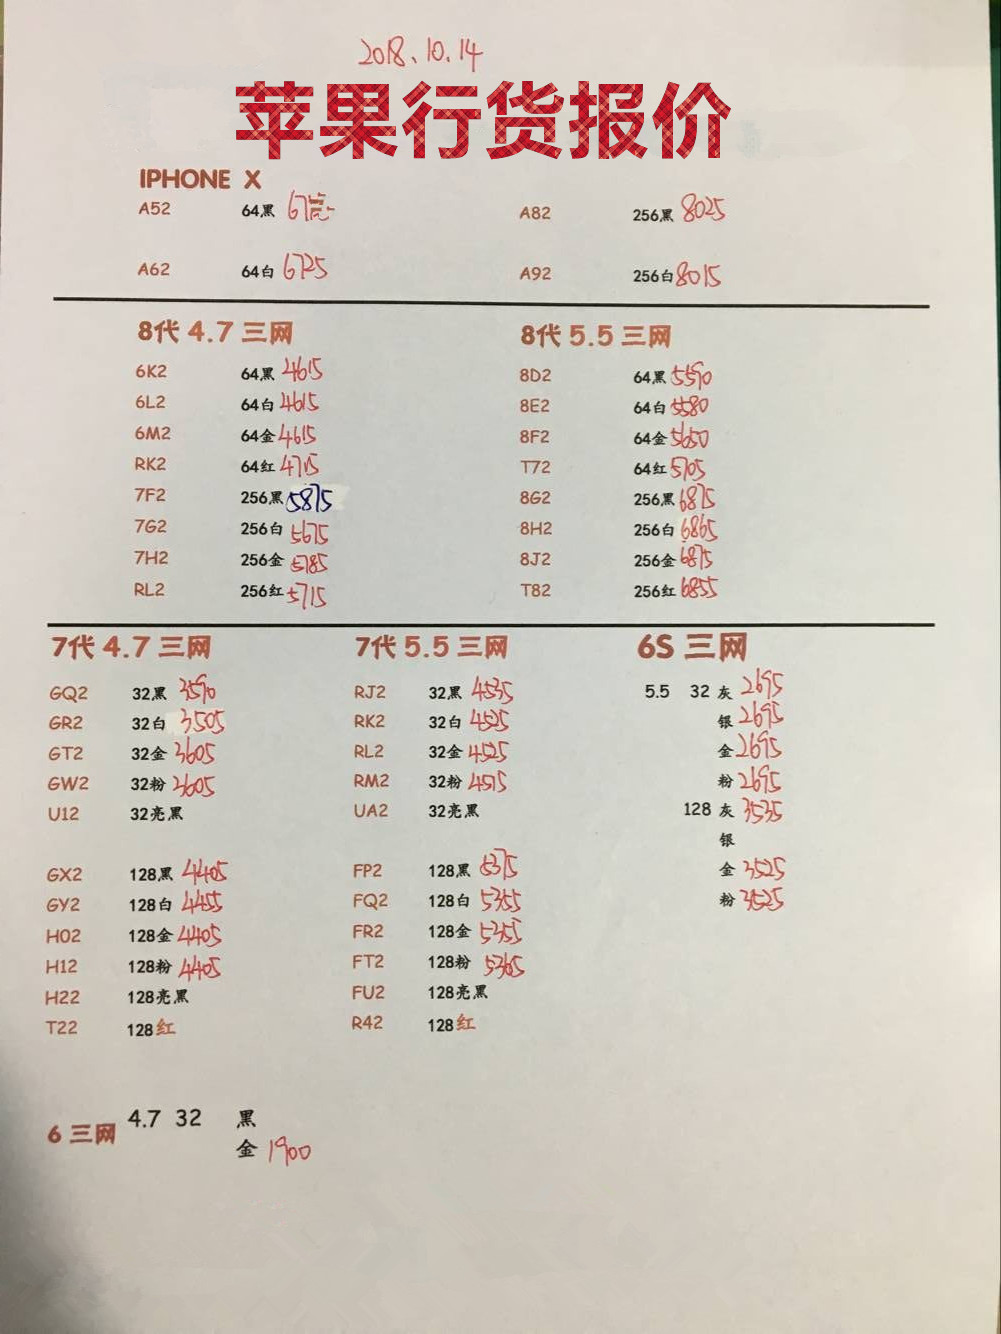 2018.10.14
苹果行货报价
IPHONE X
A52 64黑
A82 256黑 8025
A62 64白 6725
A92 256白 8015
8代 4.7 三网
8代 5.5 三网
6K2 64黑 4615
8D2 64黑 5590
6L2 64白 4615
8E2 64白 5580
6M2 64金 4615
8F2 64金 5650
RK2 64红 4715
T72 64红 5705
7F2 256黑 5875
8G2 256黑 6875
7G2 256白 5675
8H2 256白 6865
7H2 256金 5785
8J2 256金 6875
RL2 256红 5715
T82 256红 6855
7代 4.7 三网
7代 5.5 三网
6S 三网
GQ2 32黑 3590
RJ2 32黑 4535
5.5 32 灰 2695
GR2 32白 3505
RK2 32白 4525
银 2695
GT2 32金 3605
RL2 32金 4525
金 2695
GW2 32粉 3605
RM2 32粉 4515
粉 2695
U12 32亮黑
UA2 32亮黑
128 灰 3535
银
GX2 128黑 4405
FP2 128黑 5375
金 3525
GY2 128白 4455
FQ2 128白 5355
粉 3525
H02 128金 4405
FR2 128金 5355
H12 128粉 4405
FT2 128粉 5365
H22 128亮黑
FU2 128亮黑
T22 128红
R42 128红
6 三网 4.7 32 黑
金 1900